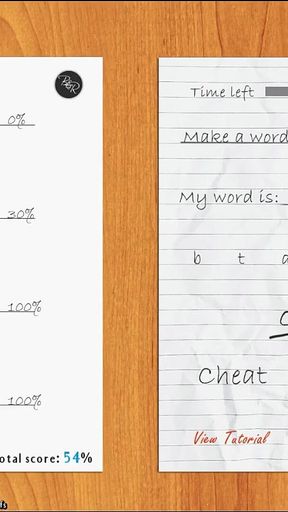 0%
30%
100%
100%
otal score: 54%
Time left
Make a word
My word is:
b t
Cheat
View Tutorial